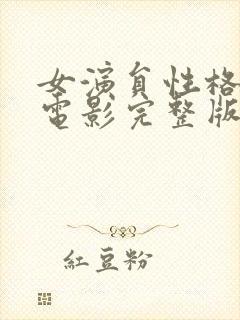 女演员性格
电影完整版
紅豆粉